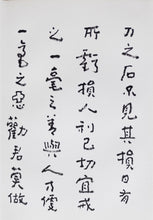 刀之石不見其損日有
所虧損人利己切宜戒
之一毫之善與人方便
一毫之惡勸君莫做